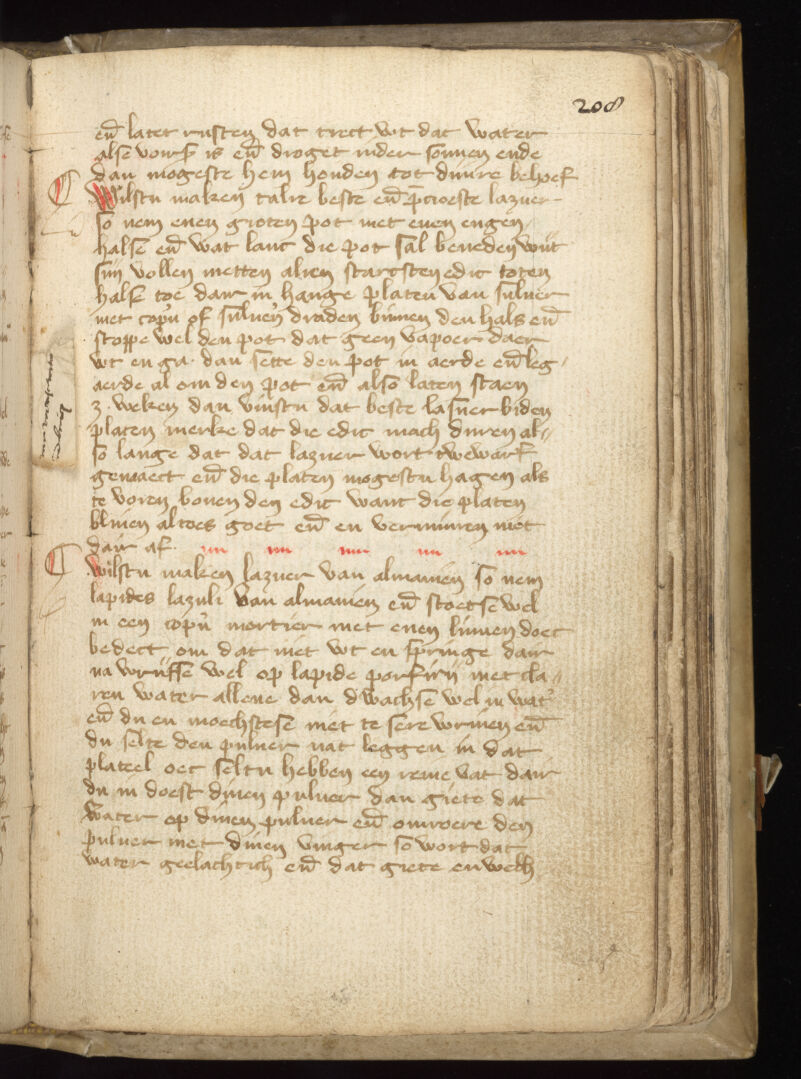 208
en̄ latet rusten dat trect wt dat water
alse voirs̄ is en̄ droget inder sonnen ende
dan mogeste hem houden tot dinre behoef
Wilstu maken talre beste en̄ p̄cioeste lazuer
so nem enen groten pot met enen engen
halse en̄ wat lanc die pot sal beneden wijt
sijn vollen metten alren starcsten edic toten
halse toe dair in hange platen van siluer
met cop̄n of siluerē draden binnen den hals en̄
stoppe wel den pot dat geen vapoer daer
wt en ga. dan sette den pot in aerde en̄ leg⸗
aerde al om den pot en̄ also laten staen
3. weken dan vinstu dat beste lasuer biden
platen merke dat die edic mach duren al⸗
so lange dat dat lazuer wort twewarf
gemaect en̄ die platen mogestu hagen als
te voren bouen den edic want die platen
bliuen altoes goet en̄ en verminren niet
dair af.
Wilstu maken lazuer van almanien so nem
lapides lazuli van almanien en̄ stoetse wel
in een cop̄n mortier met enen linnen doec
bedect om dat niet wt en springe dair
na wrijfse wel op lapide porfirij met cla⸗
ren water allene dan dwachse wel in wat̄
en̄ du en moechstese niet te sere wriuen en̄
du selte den puluer nat leggen in dat
plateel oec seltu hebben een reine vat dair
du in doest dinen puluer dan giete dat
water op dinen puluer en̄ omroere den
puluer met dinen vinger so wort dat
water geelachtich en̄ dat giete en wech